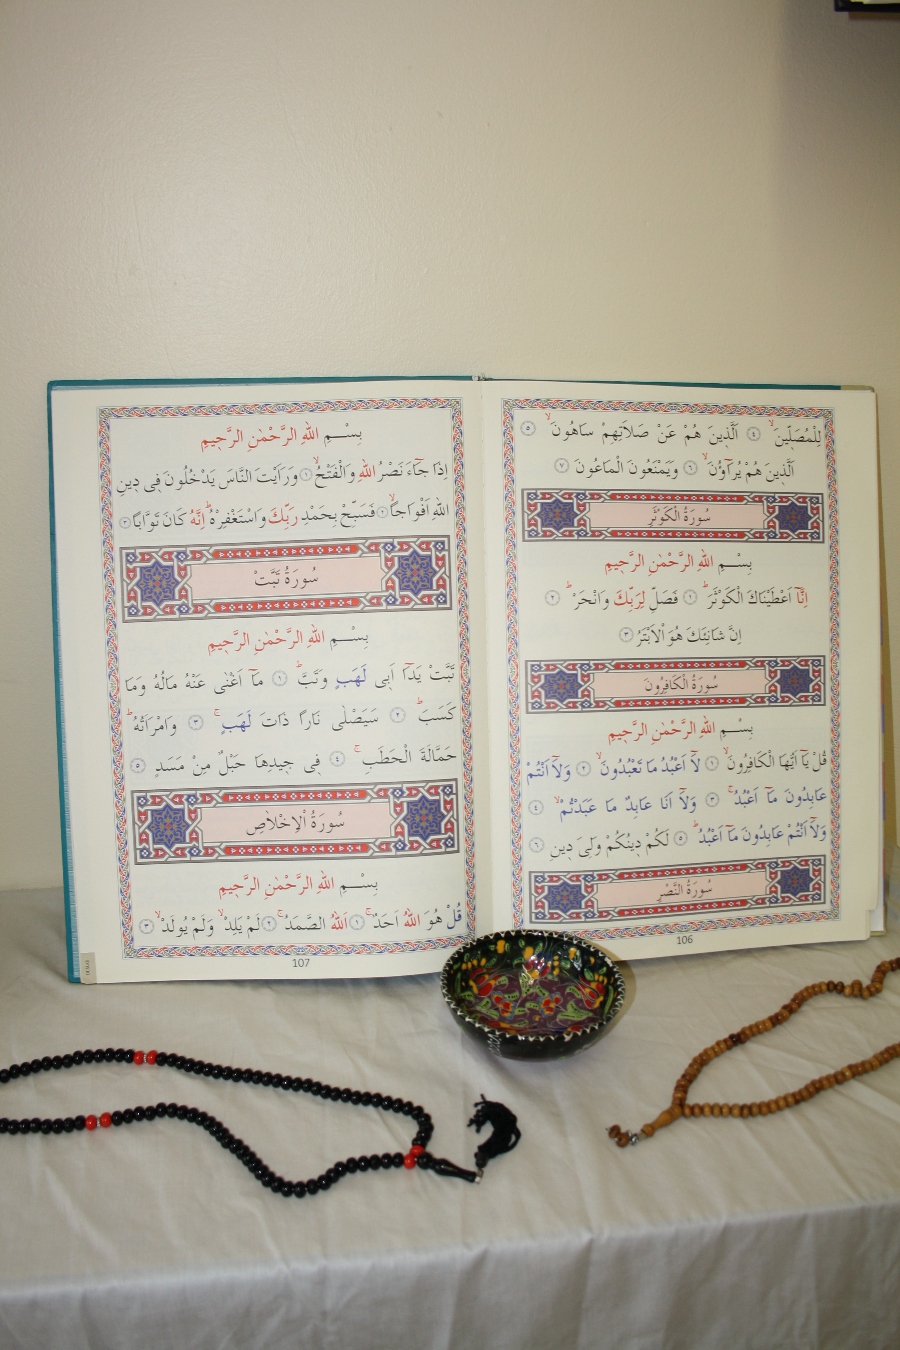 لِلْمُصَلّٖينَۙ ﴿٤﴾ اَلَّذٖينَ هُمْ عَنْ صَلَاتِهِمْ سَاهُونَۙ ﴿٥﴾
اَلَّذٖينَ هُمْ يُرَآؤُنَۙ ﴿٦﴾ وَيَمْنَعُونَ الْمَاعُونَ ﴿٧﴾
سُورَةُ الْكَوْثَرِ
بِسْمِ اللهِ الرَّحْمٰنِ الرَّحٖيمِ
اِنَّٓا اَعْطَيْنَاكَ الْكَوْثَرَۜ ﴿١﴾ فَصَلِّ لِرَبِّكَ وَانْحَرْۜ ﴿٢﴾
اِنَّ شَانِئَكَ هُوَ الْاَبْتَرُ ﴿٣﴾
سُورَةُ الْكَافِرُونَ
بِسْمِ اللهِ الرَّحْمٰنِ الرَّحٖيمِ
قُلْ يَٓا اَيُّهَا الْكَافِرُونَۙ ﴿١﴾ لَٓا اَعْبُدُ مَا تَعْبُدُونَۙ ﴿٢﴾ وَلَٓا اَنْتُمْ
عَابِدُونَ مَٓا اَعْبُدُۚ ﴿٣﴾ وَلَٓا اَنَا عَابِدٌ مَا عَبَدْتُمْۙ ﴿٤﴾
وَلَٓا اَنْتُمْ عَابِدُونَ مَٓا اَعْبُدُۜ ﴿٥﴾ لَكُمْ دٖينُكُمْ وَلِىَ دٖينِ ﴿٦﴾
سُورَةُ النَّصْرِ
106
بِسْمِ اللهِ الرَّحْمٰنِ الرَّحٖيمِ
اِذَا جَٓاءَ نَصْرُ اللهِ وَالْفَتْحُۙ ﴿١﴾ وَرَاَيْتَ النَّاسَ يَدْخُلُونَ فٖى دٖينِ
اللهِ اَفْوَاجًاۙ ﴿٢﴾ فَسَبِّحْ بِحَمْدِ رَبِّكَ وَاسْتَغْفِرْهُۜ اِنَّهُ كَانَ تَوَّابًا ﴿٣﴾
سُورَةُ تَبَّتْ
بِسْمِ اللهِ الرَّحْمٰنِ الرَّحٖيمِ
تَبَّتْ يَدَٓا اَبٖى لَهَبٍ وَتَبَّۜ ﴿١﴾ مَٓا اَغْنٰى عَنْهُ مَالُهُ وَمَا
كَسَبَۜ ﴿٢﴾ سَيَصْلٰى نَارًا ذَاتَ لَهَبٍۚ ﴿٣﴾ وَامْرَاَتُهُۜ
حَمَّالَةَ الْحَطَبِۚ ﴿٤﴾ فٖى جٖيدِهَا حَبْلٌ مِنْ مَسَدٍ ﴿٥﴾
سُورَةُ الْاِخْلَاصِ
بِسْمِ اللهِ الرَّحْمٰنِ الرَّحٖيمِ
قُلْ هُوَ اللهُ اَحَدٌۚ ﴿١﴾ اَللهُ الصَّمَدُۚ ﴿٢﴾ لَمْ يَلِدْۙ وَلَمْ يُولَدْۙ ﴿٣﴾
107